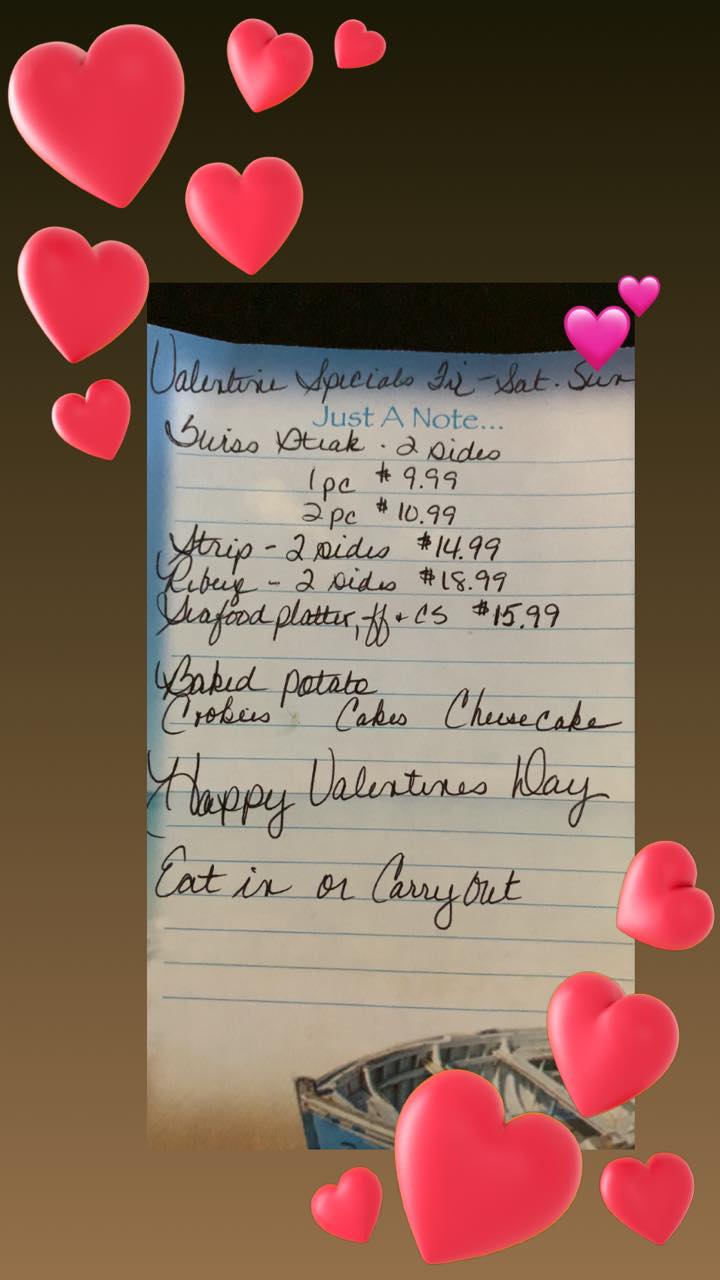 Valentine Specials Fri - Sat. Sun
Just A Note...
Swiss Steak - 2 sides
1pc $9.99
2pc $10.99
Strip - 2 sides $14.99
Ribeye - 2 sides $18.99
Seafood platter, ff + CS $15.99
Baked potato
Cookies Cakes Cheesecake
Happy Valentines Day
Eat in or Carry Out